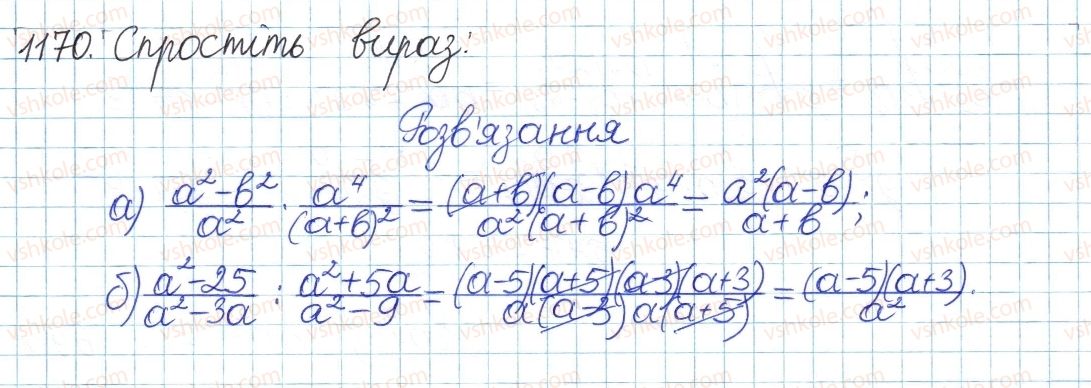 1170. Спростіть вираз:
Розв'язання
а) (a²-b²)/a² · a⁴/(a+b)² = ((a+b)(a-b)a⁴)/(a²(a+b)²) = (a²(a-b))/(a+b);
б) (a²-25)/(a²-3a) : (a²+5a)/(a²-9) = ((a-5)(a+5)(a-3)(a+3))/(a(a-3)a(a+5)) = ((a-5)(a+3))/a².
vshkole.com